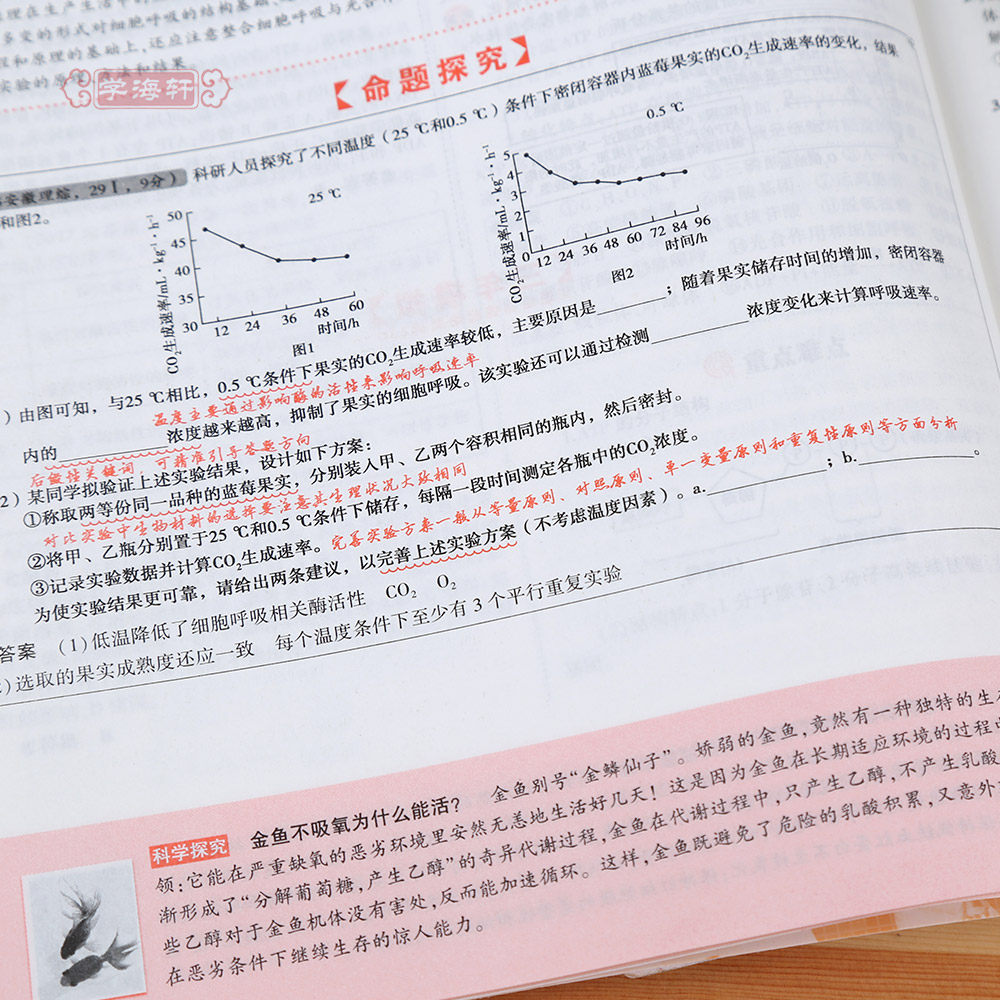 理在生产生活中的
多变的形式对细胞呼吸的结构基础、
程和原理的基础上,还应注意整合细胞呼吸与光合
实验的原理、方法和结果。
学海轩
【命题探究】
安徽理综,29Ⅰ,9分) 科研人员探究了不同温度(25 ℃和0.5 ℃)条件下密闭容器内蓝莓果实的CO₂生成速率的变化,结果
和图2。
25 ℃
CO₂生成速率/mL·kg⁻¹·h⁻¹
50
45
40
35
30
12 24 36 48 60
时间/h
图1
0.5 ℃
CO₂生成速率/mL·kg⁻¹·h⁻¹
5
4
3
2
1
0 12 24 36 48 60 72 84 96
时间/h
图2
)由图可知,与25 ℃相比,0.5 ℃条件下果实的CO₂生成速率较低,主要原因是______;随着果实储存时间的增加,密闭容器
温度主要通过影响酶的活性来影响呼吸速率
内的______浓度越来越高,抑制了果实的细胞呼吸。该实验还可以通过检测______浓度变化来计算呼吸速率。
后做性关键词,可精准引导答题方向
2)某同学拟验证上述实验结果,设计如下方案:
①称取两等份同一品种的蓝莓果实,分别装入甲、乙两个容积相同的瓶内,然后密封。
对比实验中生物材料的选择要注意其生理状况大致相同
②将甲、乙瓶分别置于25 ℃和0.5 ℃条件下储存,每隔一段时间测定各瓶中的CO₂浓度。
③记录实验数据并计算CO₂生成速率。完善实验方案一般从等量原则、对照原则、单一变量原则和重复性原则等方面分析
为使实验结果更可靠,请给出两条建议,以完善上述实验方案(不考虑温度因素)。a.______;b.______。
答案 (1)低温降低了细胞呼吸相关酶活性 CO₂ O₂
)选取的果实成熟度还应一致 每个温度条件下至少有3个平行重复实验
科学探究 金鱼不吸氧为什么能活? 金鱼别号“金鳞仙子”。娇弱的金鱼,竟然有一种独特的生存
领:它能在严重缺氧的恶劣环境里安然无恙地生活好几天!这是因为金鱼在长期适应环境的过程中
渐形成了“分解葡萄糖,产生乙醇”的奇异代谢过程,金鱼在代谢过程中,只产生乙醇,不产生乳酸
些乙醇对于金鱼机体没有害处,反而能加速循环。这样,金鱼既避免了危险的乳酸积累,又意外
在恶劣条件下继续生存的惊人能力。